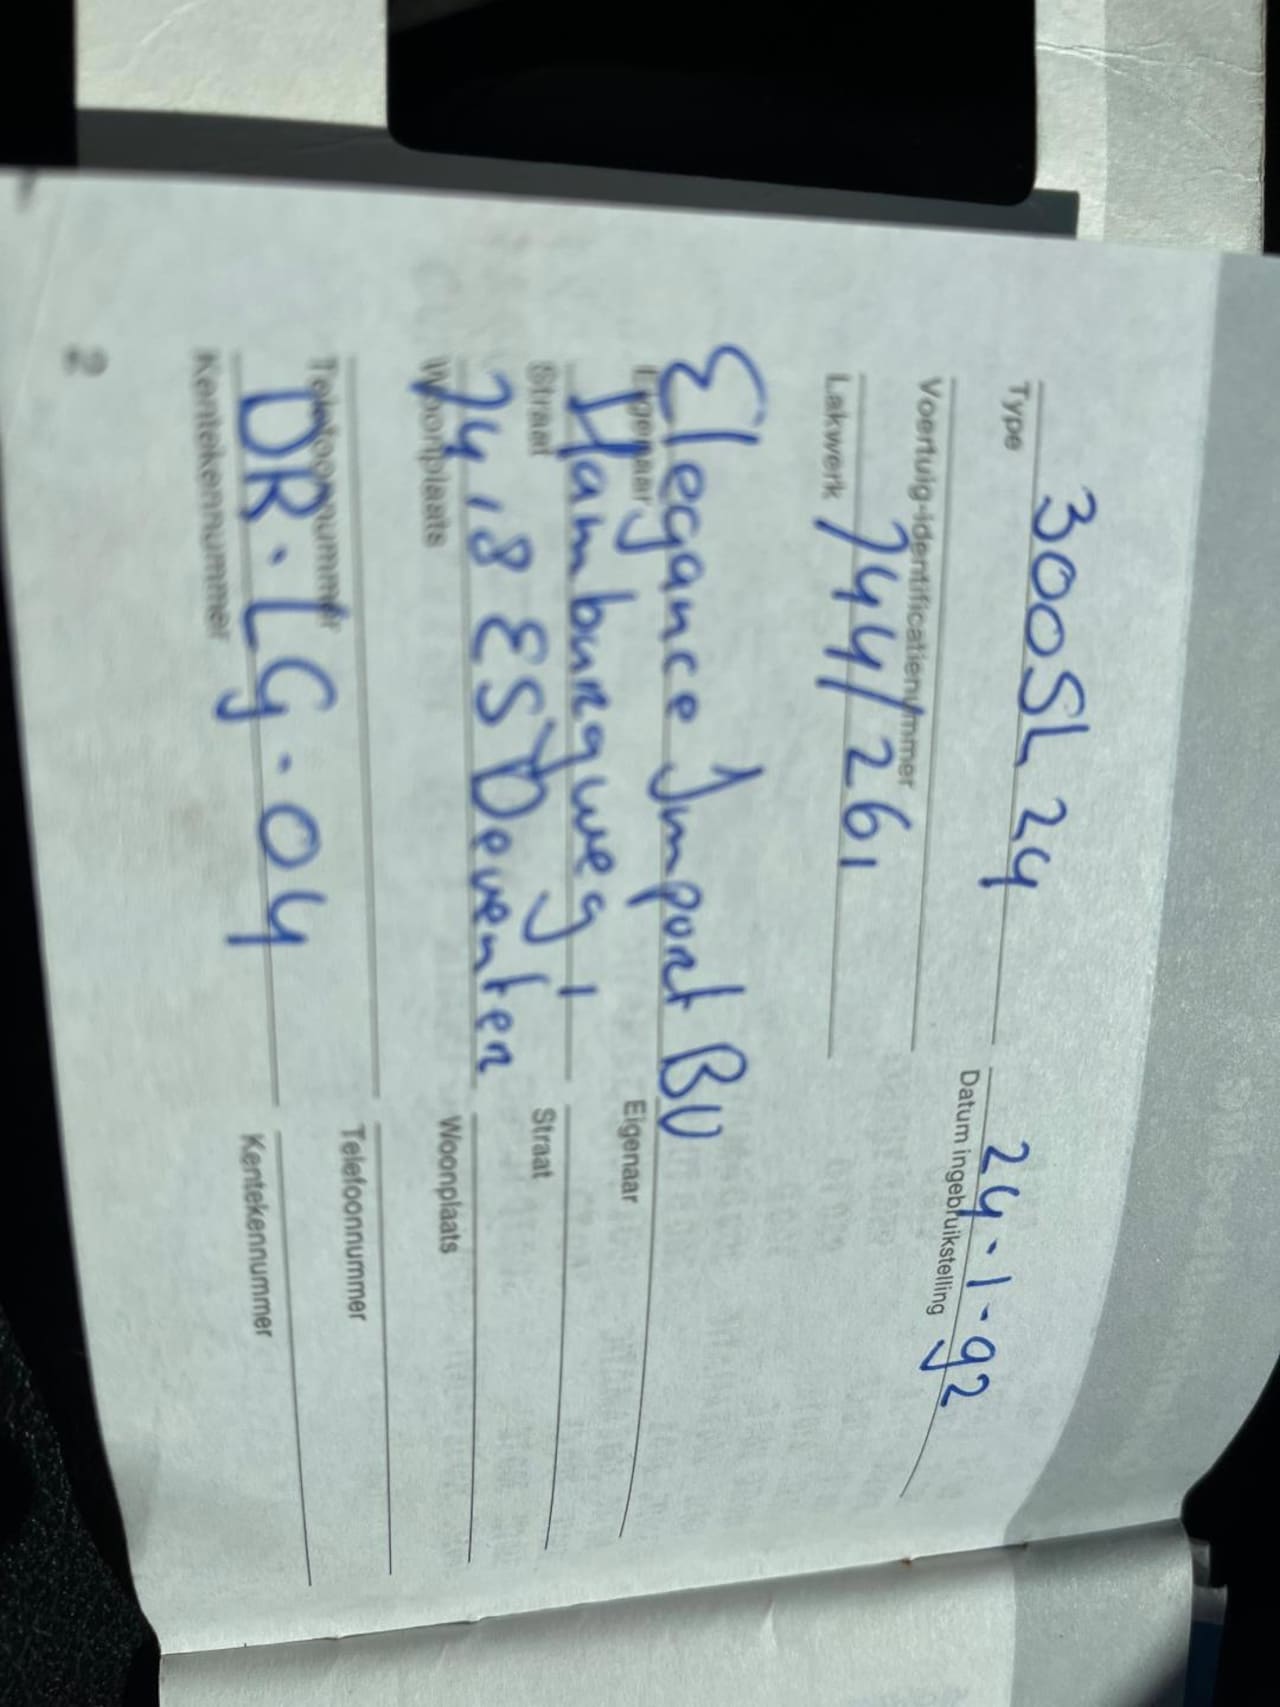 300SL 24
24-1-92
Type
Datum ingebruikstelling
Voertuig-identificatienummer
744/261
Lakwerk
Elegance Import BV
Eigenaar
Eigenaar
Hamburgweg 1
Straat
Straat
7418 ES Deventer
Woonplaats
Woonplaats
Telefoonnummer
Telefoonnummer
DR-LG-04
Kentekennummer
Kentekennummer
2